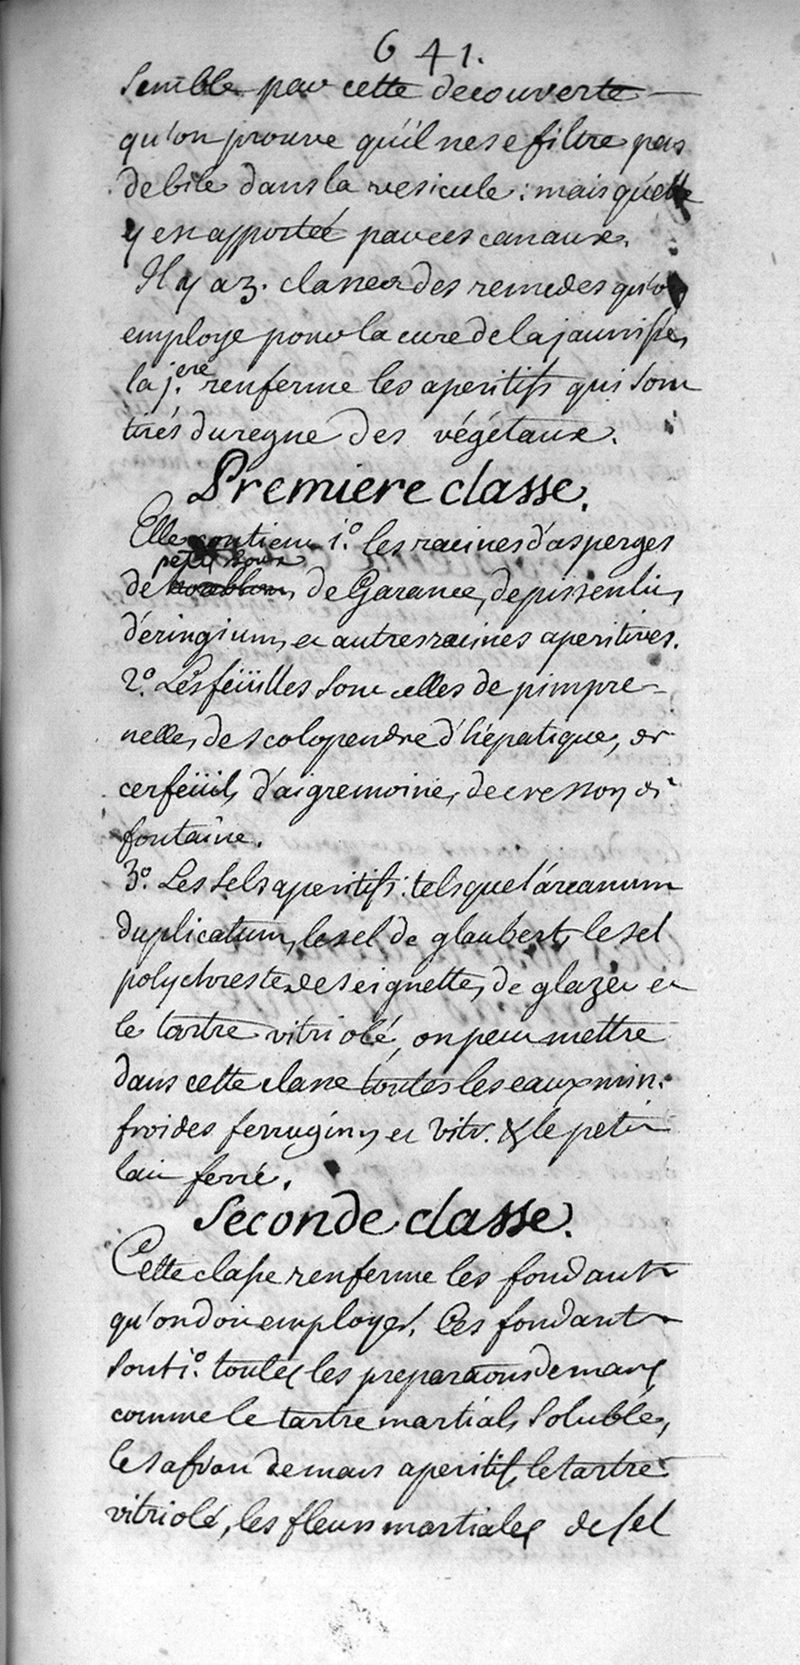 641.
Semble par cette decouverte
qu'on prouve qu'il ne se filtre pas
de bile dans la vesicule : mais qu'elle
y est apportée par ces canaux.
Il y a 3. classes des remedes qu'on
employe pour la cure de la jaunisse,
la j.ere renferme les aperitifs qui sont
tirés du regne des végétaux.
Premiere classe.
Elle contient 1.º les racines d'asperges
petit houx
de houblon, de Garance, de pissenlit,
d'éringium, et autres racines aperitives.
2.º Les feüilles sont celles de pimpre-
nelle, de scolopendre d'hépatique, de
cerfeüil, d'aigremoine, de cresson de
fontaine.
3.º Les sels aperitifs : tels que l'arcanum
duplicatum, le sel de glaubert, le sel
polychreste de seignette, de glazer et
le tartre vitriolé, on peut mettre
dans cette classe toutes les eaux min.
froides ferrugin, et vitr. & le petit
lait ferré.
Seconde classe.
Cette classe renferme les fondants
qu'on doit employer. Ces fondants
sont 1.º toutes les preparaons de mars
comme le tartre martial, soluble,
le safran de mars aperitif, le tartre
vitriolé, les fleurs martiales de sel